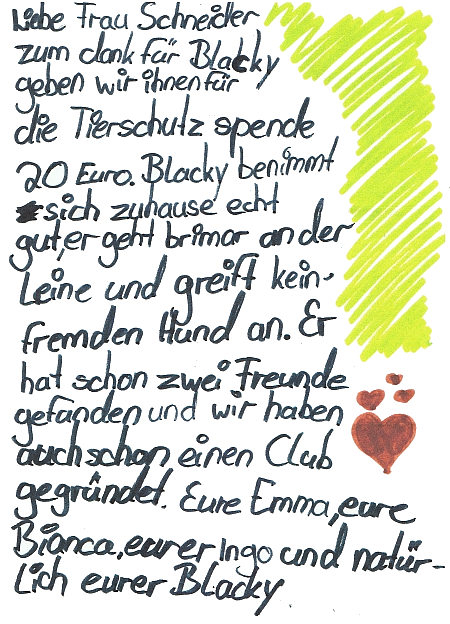 Liebe Frau Schneider
zum dank für Blacky
geben wir ihnen für
die Tierschutz spende
20 Euro. Blacky benimmt
sich zuhause echt
gut, er geht brimar an der
Leine und greift kein-
fremden Hund an. Er
hat schon zwei Freunde
gefanden und wir haben
auch schon einen Club
gegründet. Eure Emma, eure
Bianca, eurer Ingo und natür-
lich eurer Blacky